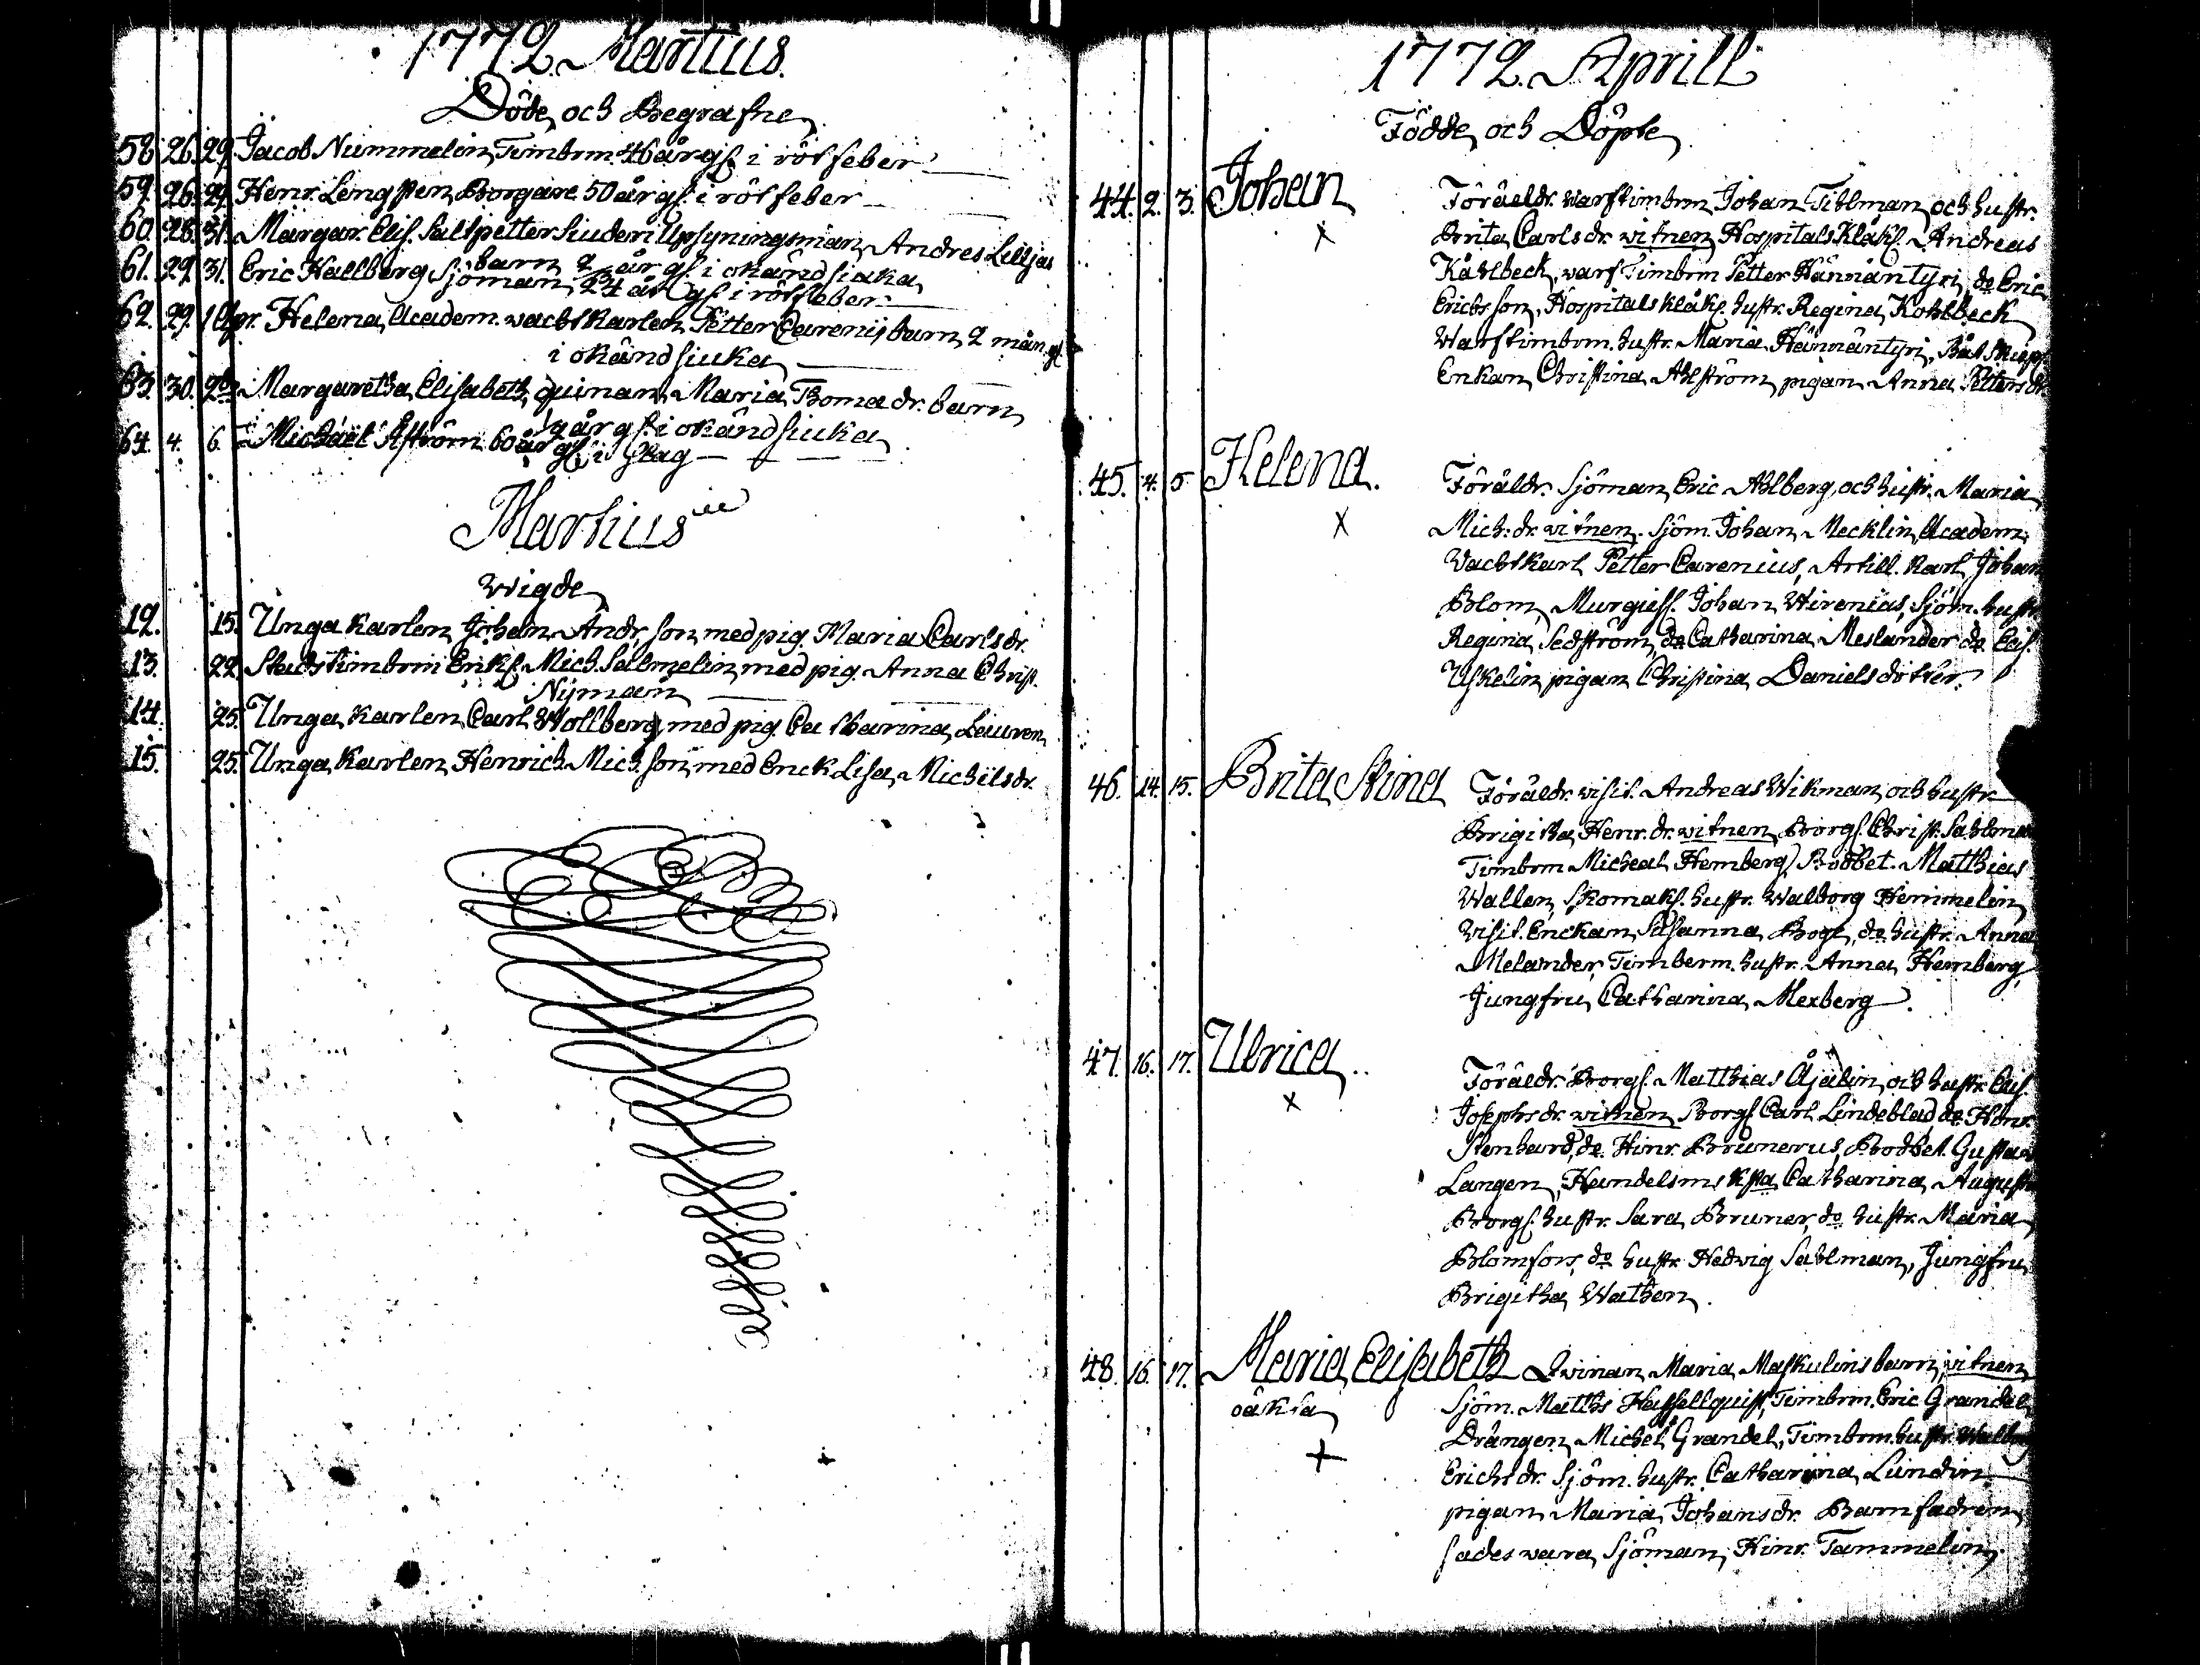 1772. Martius.
Döde och Begrafne
58. 26. 29. Jacob Nummelin Timbrm. 46 år gl. i rötfeber
59. 26. 29. Henr. Lengsten Borgare 50 år gl. i rötfeber
60. 28. 31. Margar. Elis. Saltpetter Siuderi Upsyningsman Andres Lilljas
barn 2 år gl. i okänd siuka
61. 29. 31. Eric Hallberg Sjöman 24 år gl. i rötfeber
62. 29. 1 Apr. Helena Academ. wachtkarlen Petter Carenii barn 2 mån. gl.
i okänd siuka
63. 30. 2 do Margaretha Elisabeth quinan Maria Thomadr. barn
år gl. i okänd siuka
64. 4. 6. Michael Åström 60 år gl. i slag
Martius
Wigde
12. 15. Unga Karlen Johan Andr. son med pig. Maria Carlsdr.
13. 22. Stads timbrm Mich. Sallmelin med pig. Anna Christ.
Nyman
14. 25. Unga Karlen Carl Wollberg med pig. Catharina Leuren
15. 25. Unga Karlen Henrich Mich. son med Enck Lisa Michelsdr.
1772. Aprill
Födde och Döpte
44. 2. 3. Johan Föräldr. warftimbrm Johan Tihlman och hustr.
x Brita Carlsdr. witnen Hospitals Kläk. Andreas
Kåhlbeck, warf Timbrm Petter Hännäntyri, do Eric
Erichsson, Hospitals kläk. hustr. Regina Kohlbeck
Warftimbrm. hustr. Maria Hännäntyri, Båtskiepp.
Enkan Christina Ahlström, pigan Anna Pettersdr.
45. 4. 5. Helena. Föräldr. Sjöman Eric Ahlberg, och hustr. Maria
x Mich: dr. witnen. Sjöm. Johan Mecklin, Academ.
Wachtkarl Petter Carenius, Artill. Karl Johan
Blom, Murgiess. Johan Wirenius, Sjöm. hustr.
Regina Sedström, do Catharina Meslander do Elis.
Uskelin pigan Christina Danielsdotter.
46. 14. 15. Brita Stina Föräldr. visit. Andreas Wikman och hustr.
Brigitha Henr. dr. witnen Borgs. Christ. Sahlman
Timbrm Micheal Hemberg, Brodbet. Matthias
Wallen, Skomaks. hustr. Walborg Hemmelin
Visit. Enckan Susanna Boge, do hustr. Anna
Melander, Timberm. hustr. Anna Hemberg,
Jungfru Catharina Mexberg.
47. 16. 17. Ulrica. Föräldr. Borgs. Matthias Åjalin och hustr. Elis.
x Josephsdr. witnen Borgs Carl Lindeblad, do Henr.
Stenhard, do Hinr. Brunerus, Brodbet. Gustaf
Langen, Handelsms Ksta Catharina Augustin
Borgs. hustr. Sara Bruner, do hustr. Maria
Blomfors, do hustr. Hedvig Sahlman, Jungfru
Brigitha Wathen.
48. 16. 17. Maria Elisabeth Qvinan Maria Maskulins barn, witnen
oäkta Sjöm. Matths Hassellquist, Timbrm. Eric Grandel
+ Drängen Michel Grandel, Timbrm. hustr. Walborg
Erichsdr. Sjöm. hustr. Catharina Lundin
pigan Maria Johansdr. Barnfadren
sades wara Sjöman Hinr. Tammelin.